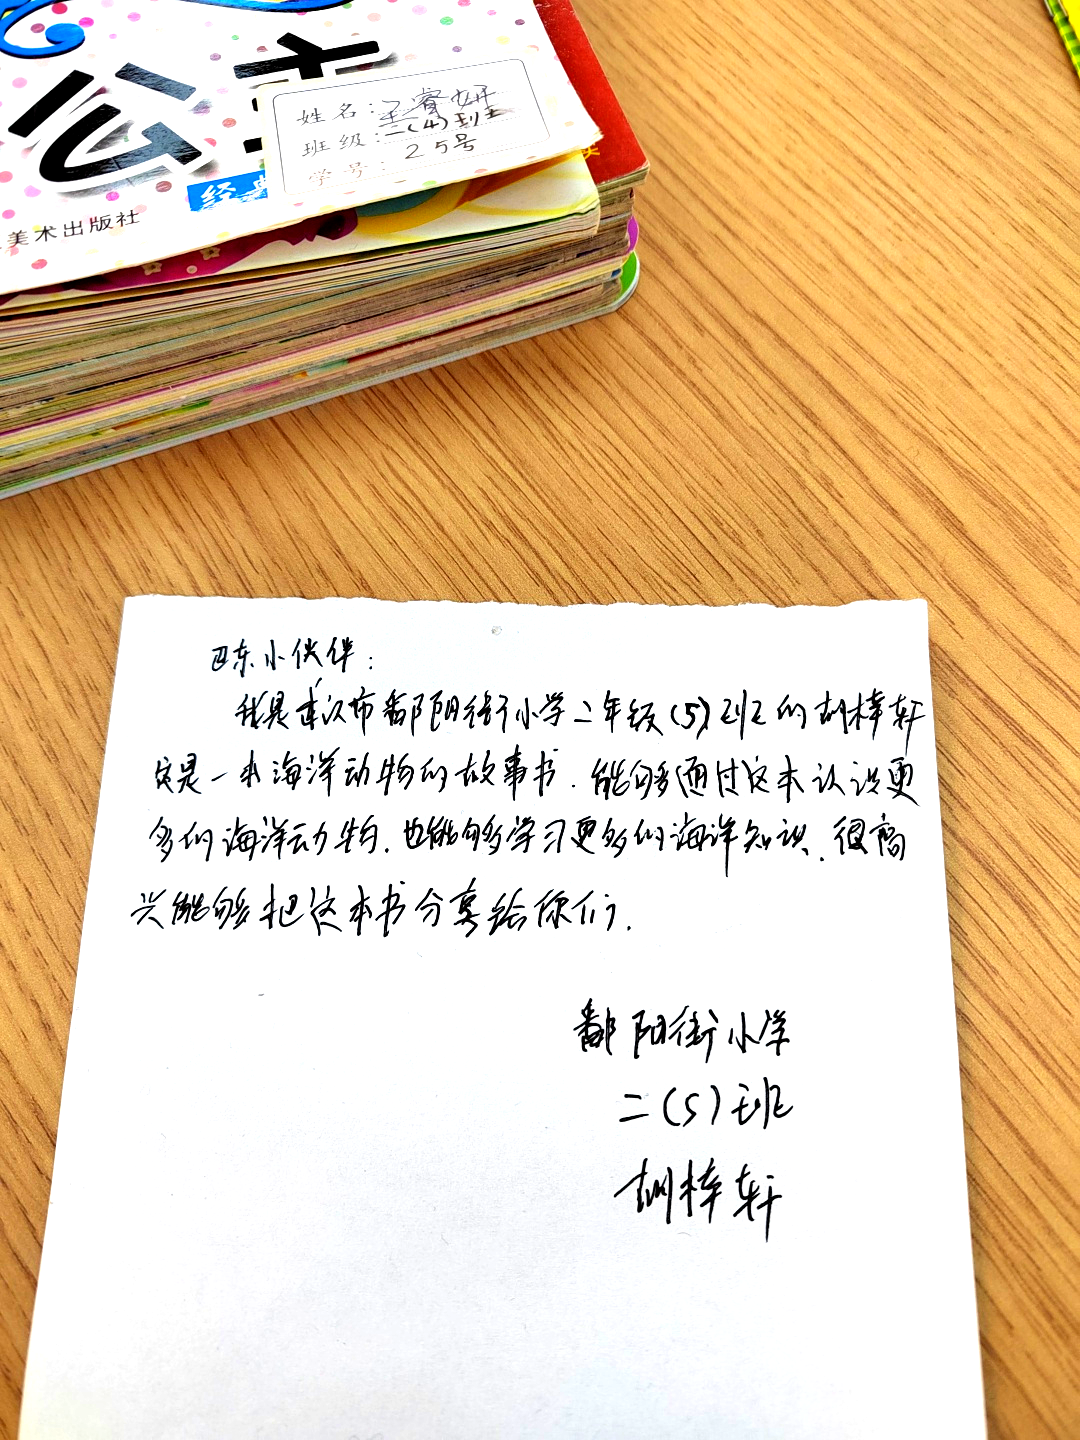 公主
经典
美术出版社
姓名：王睿妍
班级：二(4)班
学号：25号
巴东小伙伴：
我是武汉市鄱阳街小学二年级(5)班的胡梓轩
这是一本海洋动物的故事书.能够通过这本认识更
多的海洋动物.也能够学习更多的海洋知识.很高
兴能够把这本书分享给你们.
鄱阳街小学
二(5)班
胡梓轩